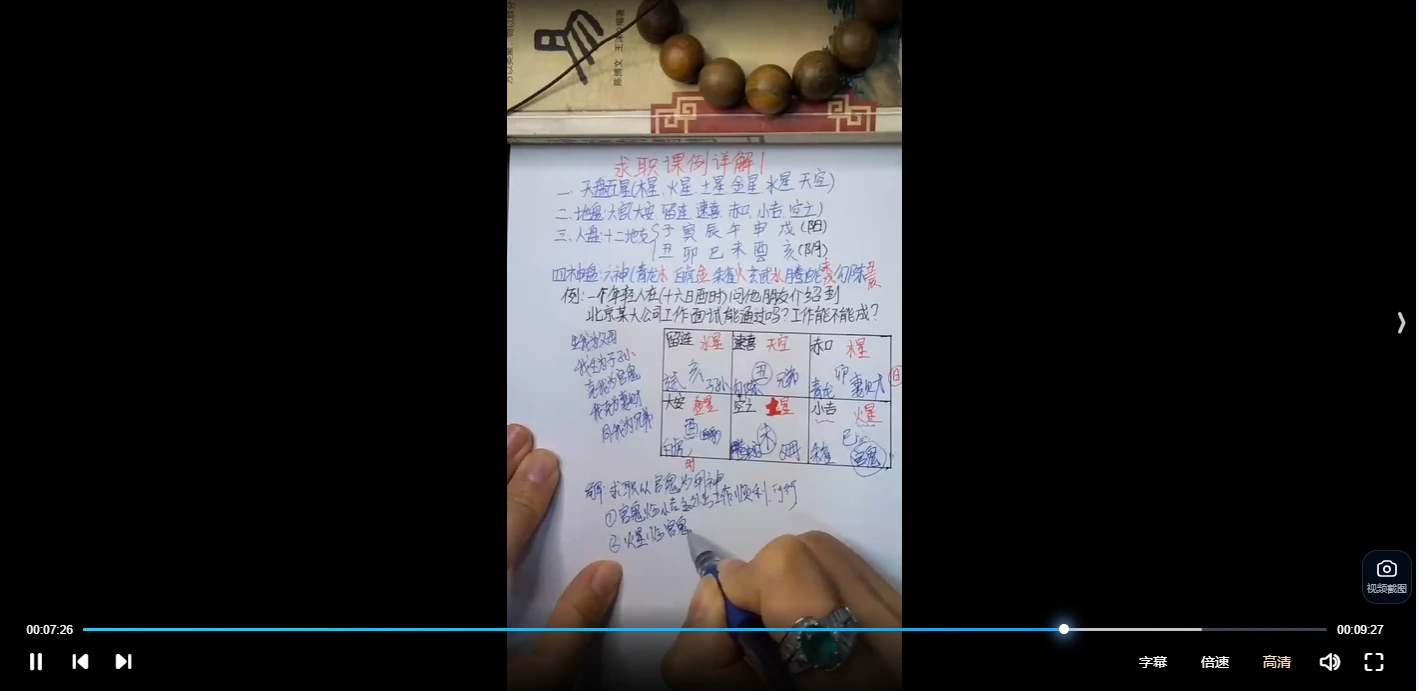 陈博文 王
求职课例详解1
一、天盘五星(木星、火星 土星 金星 水星 天空)
二、地盘:六宫(大安 留连 速喜、赤口、小吉、空亡)
三、人盘:十二地支 子 寅 辰 午 申 戌 (阳)
丑 卯 巳 未 酉 亥 (阴)
四神盘:六神(青龙木 白虎金 朱雀火 玄武水 腾蛇 勾陈
例:一个年轻人在(十六日酉时)问他朋友介绍到
北京某大公司工作面试能通过吗?工作能不能成?
生我为父母
我生为子孙
克我为官鬼
我克为妻财
同我为兄弟
留连 水星 速喜 天空 赤口 木星
亥 丑 卯 日
玄武 子孙 勾陈 兄弟 青龙 妻财
大安 金星 空亡 土星 小吉 火星
酉 未 巳
白虎 腾蛇 父母 朱雀 官鬼
时
解:求职以官鬼为用神
①官鬼临小吉 工作顺利
②火星临官鬼
00:07:26
00:09:27
视频截图
字幕 倍速 高清